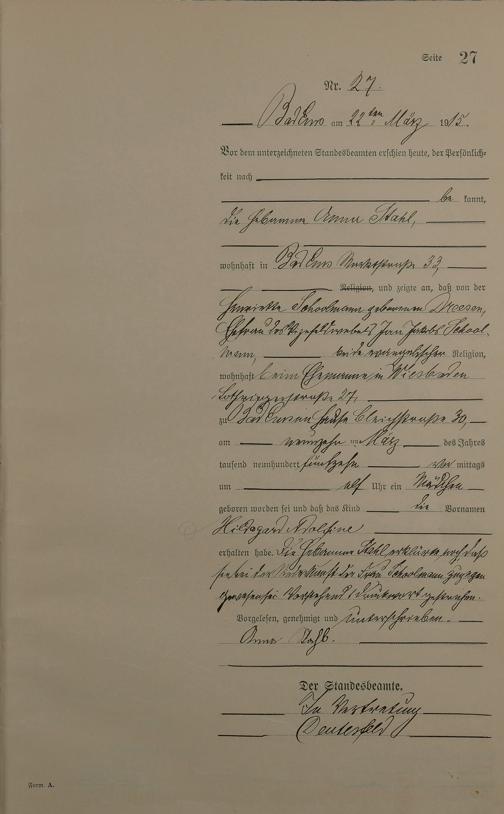 Seite 27
Nr. 27.
Bad Ems am 22ten März 1915.
Vor dem unterzeichneten Standesbeamten erschien heute, der Persönlich-
keit nach
be kannt,
die Hebamme Anna Stahl,
wohnhaft in Bad Ems Marktstraße 33,
Religion, und zeigte an, daß von der
Henriette Schoolmann geborenen Dreesen,
Ehefrau des Vizefeldwebels Jan Jakobs School-
mann, beide evangelischer Religion,
wohnhaft beim Ehemanne, in Wiesbaden
Lothringerstraße 27,
zu Bad Ems im Hause Bleichstraße 30,
am neunzehn ten März des Jahres
tausend neunhundert fünfzehn vor mittags
um elf Uhr ein Mädchen
geboren worden sei und daß das Kind die Vornamen
Hildegard Adolfine
erhalten habe. Die Hebamme Stahl erklärte noch daß
sie bei der Niederkunft der Frau Schoolmann zugegen
gewesen sei. Vorstehend 1 Druckwort gestrichen.
Vorgelesen, genehmigt und unterschrieben.
Anna Stahl.
Der Standesbeamte.
In Vertretung
Form. A.